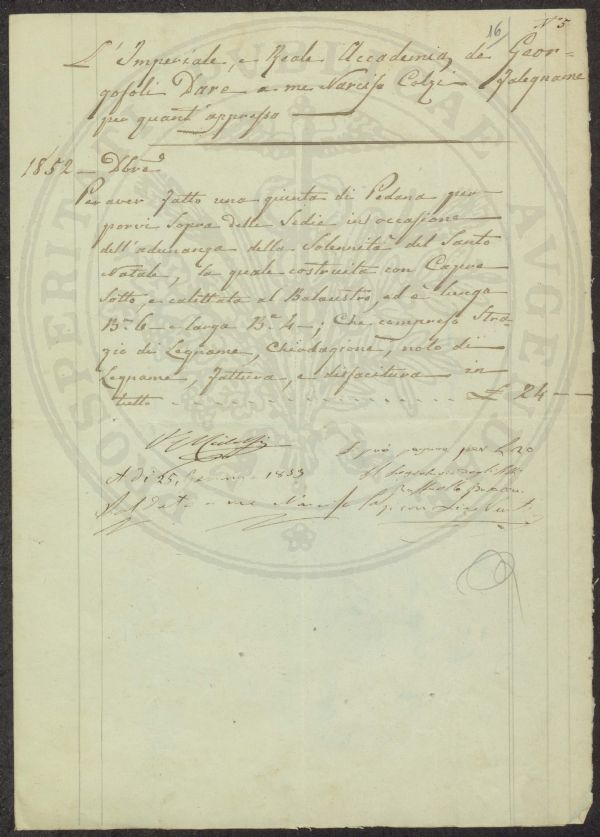 16 N 3
L'Imperiale, e Reale Accademia, de' Geor-
gofoli Dare a me Narciso Colzi Falegname
per quant'appresso
1852 — Dbre
Per aver fatto una giunta di Pedana per
porvi Sopra delle Sedie in occasione
dell'adunanza della Solennità del Santo
Natale, la quale costruita con Capre
Sotto, e calettata al Balaustro, ed è lunga
Ba 6 — e larga Ba 4 —; Che compreso Stra-
zio di Legname, Chiodagione, nolo di
Legname, fattura, e disfacitura in
tutto £ 24 — —
Si può pagare per £ 20
A dì 25, 1853
a me Narciso
PROSPERITATI PUBLICAE AUGENDAE